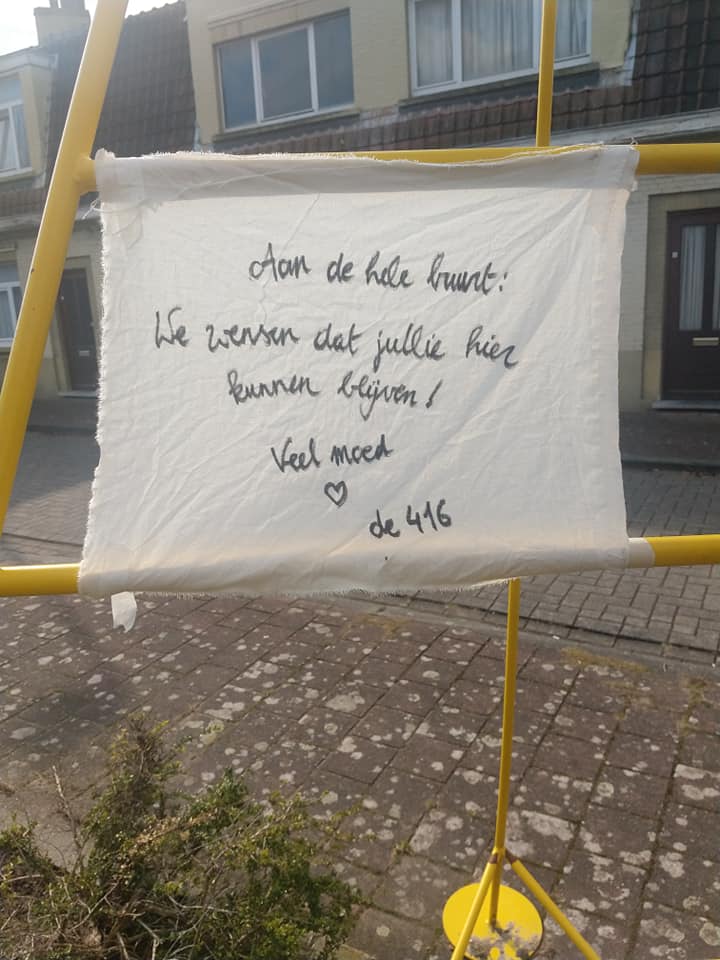 Aan de hele buurt:
We wensen dat jullie hier
kunnen blijven!
Veel moed
♡
de 416